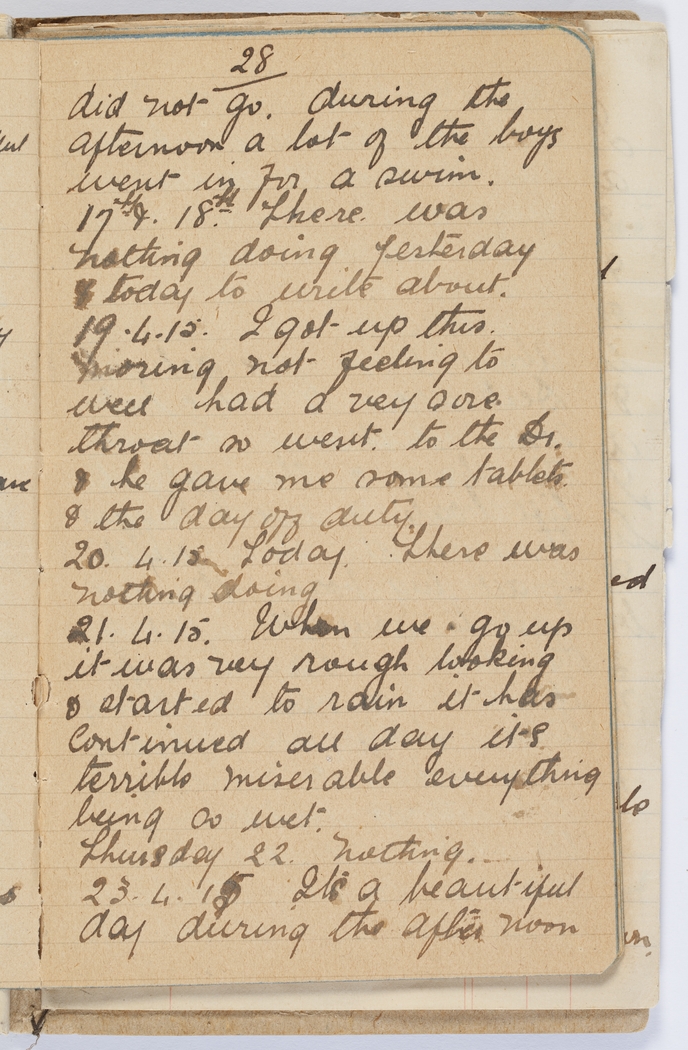 28
did not go. during the
afternoon a lot of the boys
went in for a swim.
17th &. 18th There was
nothing doing yesterday
& today to write about.
19.4.15. I got up this.
moring not feeling to
well had a vey sore
throat so went. to the Dr.
& he gave me some tablets.
& the day off duty.
20. 4.15 Today. There was
nothing doing
21. 4. 15. When we go up
it was vey rough looking
& started to rain it has
continued all day its
terrible miserable everything
being so wet.
Thursday 22. nothing.
23. 4. 15 Its a beautiful
day during the after noon